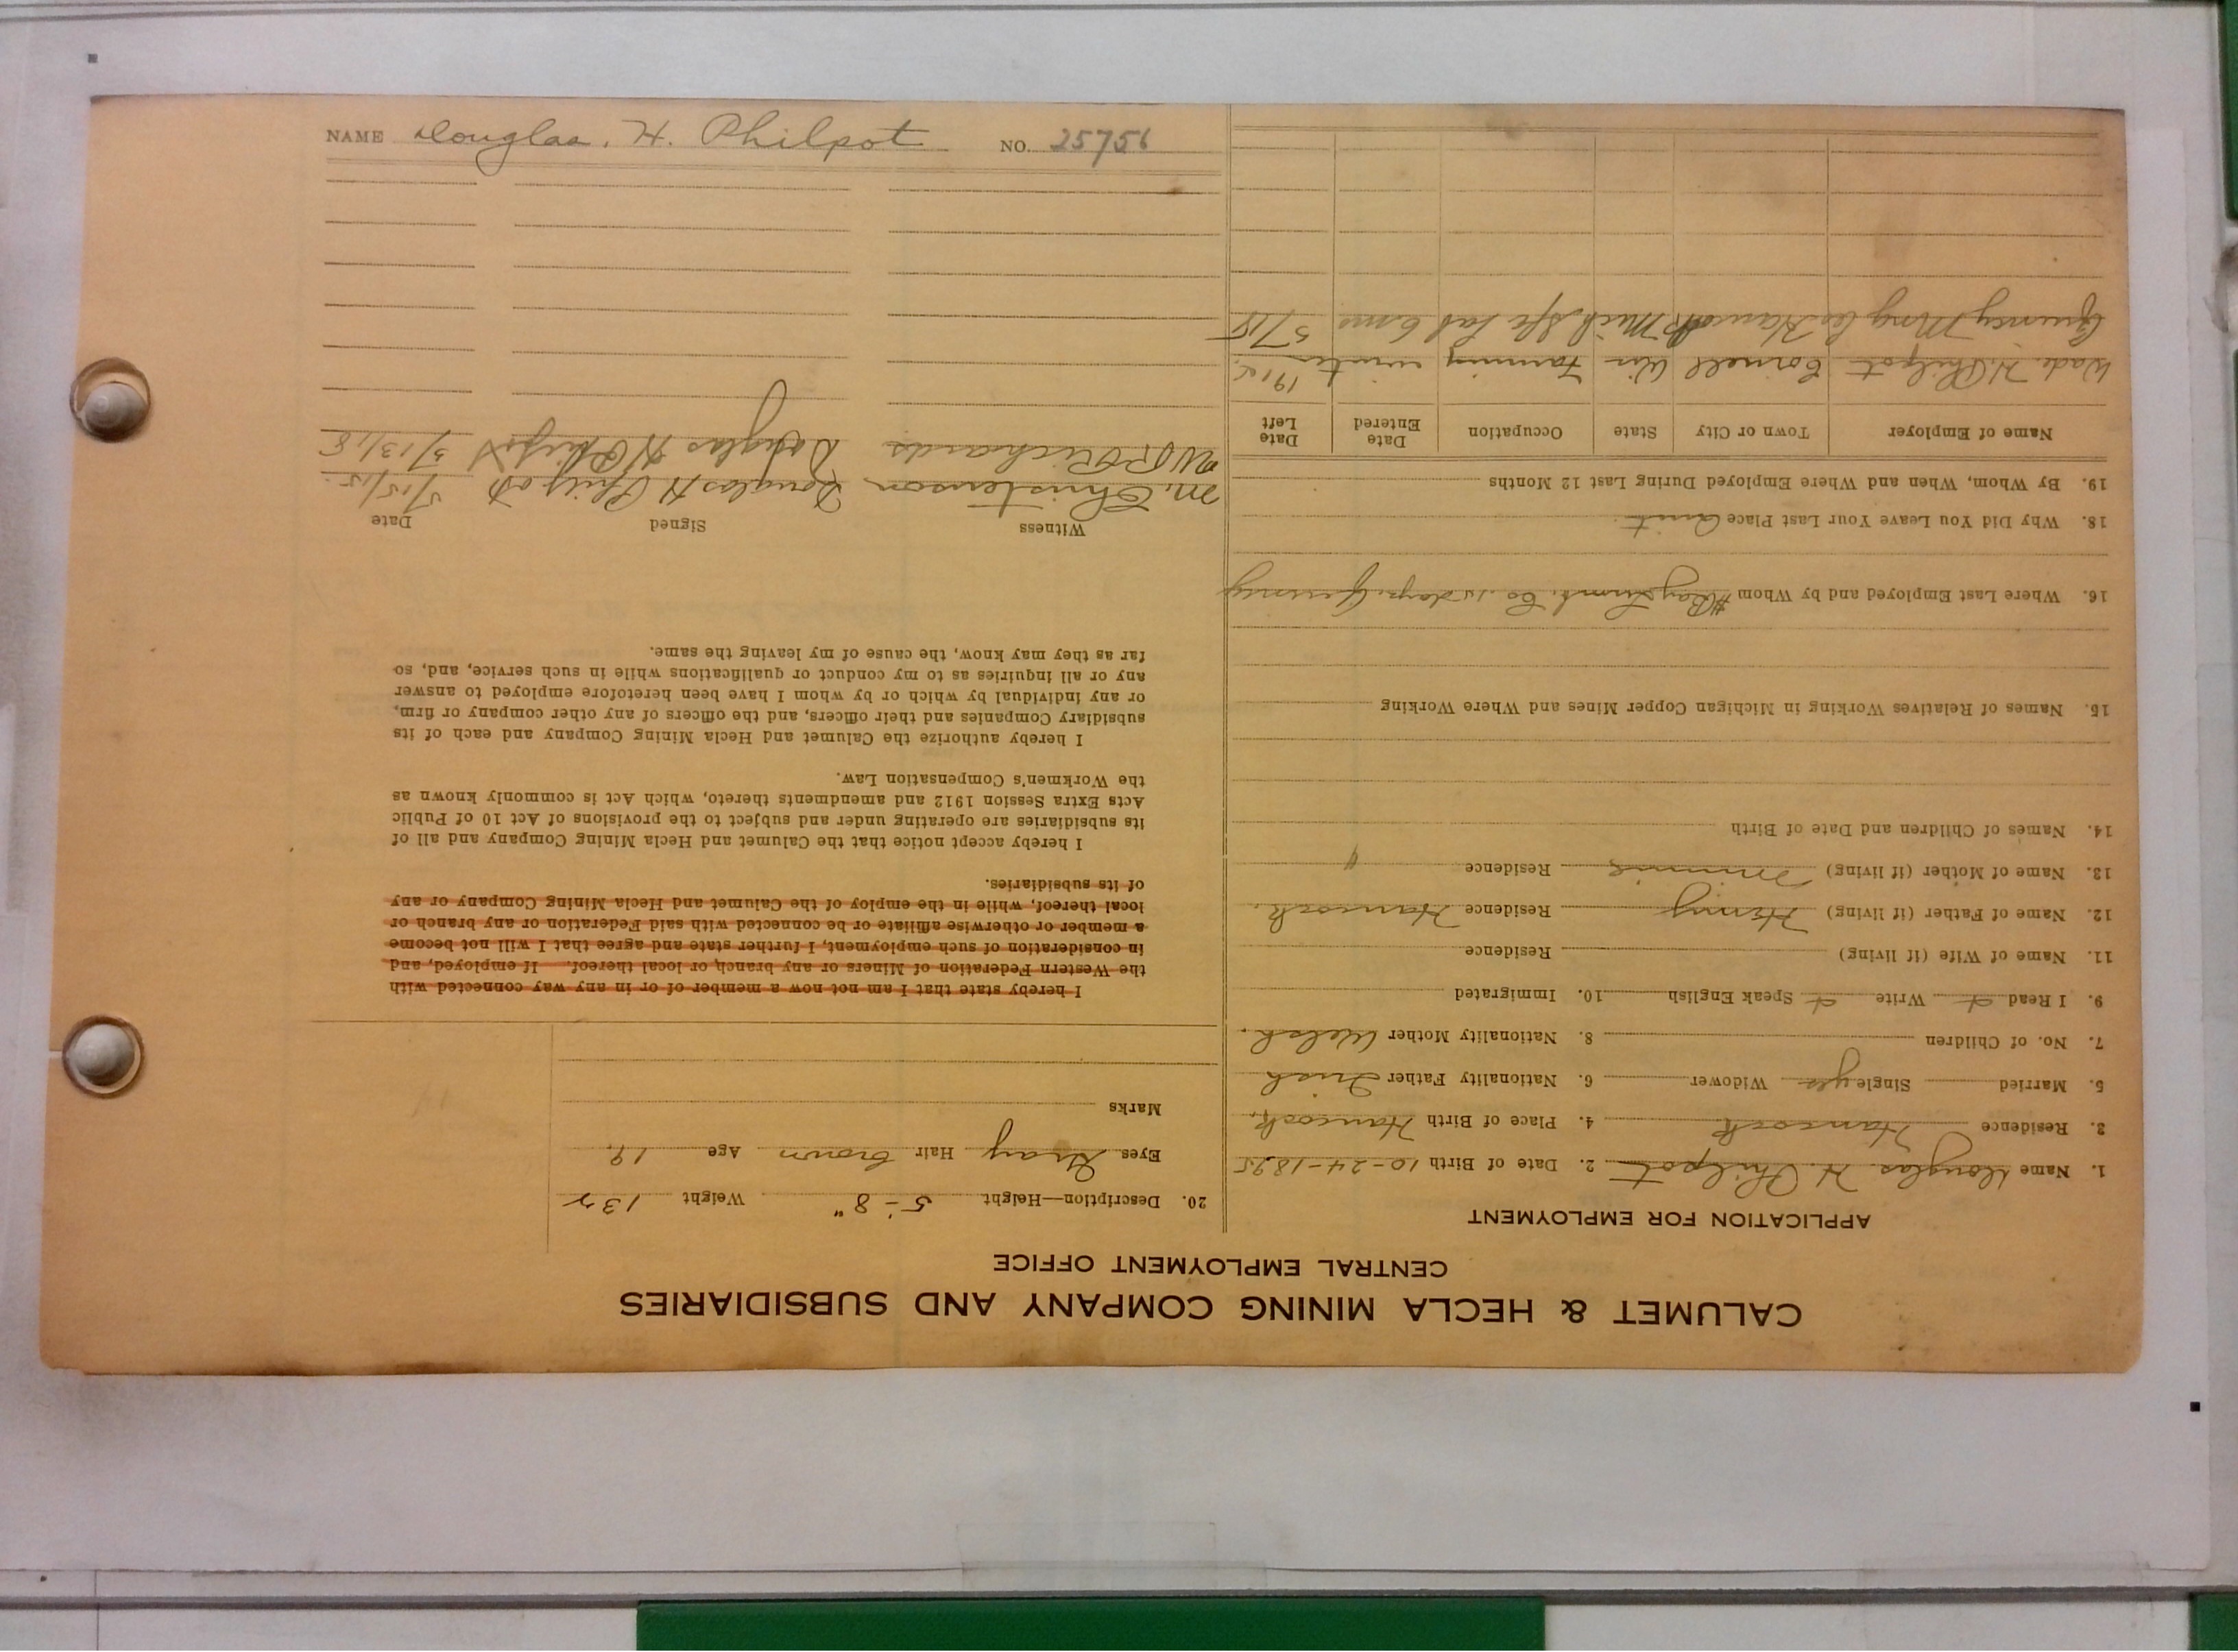 CALUMET & HECLA MINING COMPANY AND SUBSIDIARIES
CENTRAL EMPLOYMENT OFFICE
APPLICATION FOR EMPLOYMENT
1. Name Douglas H. Philpot 2. Date of Birth 10-24-1895
3. Residence Hancock 4. Place of Birth Hancock.
5. Married Single yes Widower 6. Nationality Father Irish
7. No. of Children 8. Nationality Mother Welsh.
9. I Read Write Speak English 10. Immigrated
11. Name of Wife (if living) Residence
12. Name of Father (if living) Henry Residence Hancock.
13. Name of Mother (if living) Minnie Residence "
14. Names of Children and Date of Birth
15. Names of Relatives Working in Michigan Copper Mines and Where Working
16. Where Last Employed and by Whom Co. 15 days. Quincy
18. Why Did You Leave Your Last Place Quit
19. By Whom, When and Where Employed During Last 12 Months
Name of Employer Town or City State Occupation Date Entered Date Left
Wade H. Philpot Cornell Wis Farming winter 1915.
Quincy Mng Co Hancock Mich Lab 6 mo 5/15
20. Description—Height 5-8" Weight 132
Eyes Gray Hair Brown Age 19.
Marks
I hereby state that I am not now a member of or in any way connected with
the Western Federation of Miners or any branch, or local thereof. If employed, and
in consideration of such employment, I further state and agree that I will not become
a member or otherwise affiliate or be connected with said Federation or any branch or
local thereof, while in the employ of the Calumet and Hecla Mining Company or any
of its subsidiaries.
I hereby accept notice that the Calumet and Hecla Mining Company and all of
its subsidiaries are operating under and subject to the provisions of Act 10 of Public
Acts Extra Session 1912 and amendments thereto, which Act is commonly known as
the Workmen's Compensation Law.
I hereby authorize the Calumet and Hecla Mining Company and each of its
subsidiary Companies and their officers, and the officers of any other company or firm,
or any individual by which or by whom I have been heretofore employed to answer
any or all inquiries as to my conduct or qualifications while in such service, and, so
far as they may know, the cause of my leaving the same.
Witness Signed Date
M. Christenson Douglas H Philpot 5/15/15.
Richards Douglas H Philpot 3/13/18
NAME Douglas. H. Philpot NO. 25756